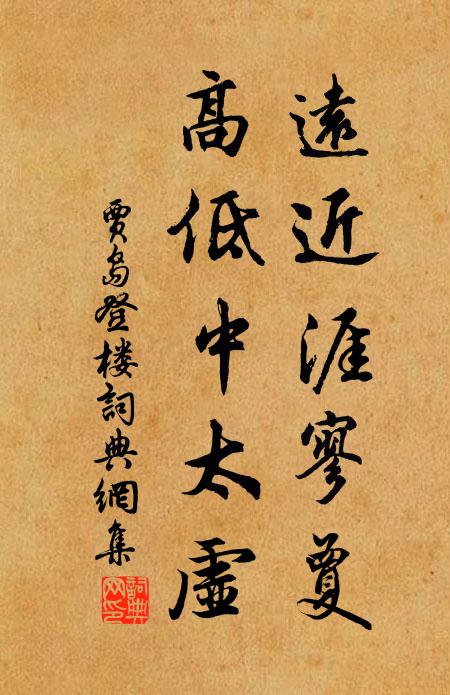 遠近涯寥夐
高低中太虛
賈島登樓詞典網集
詞典
网印